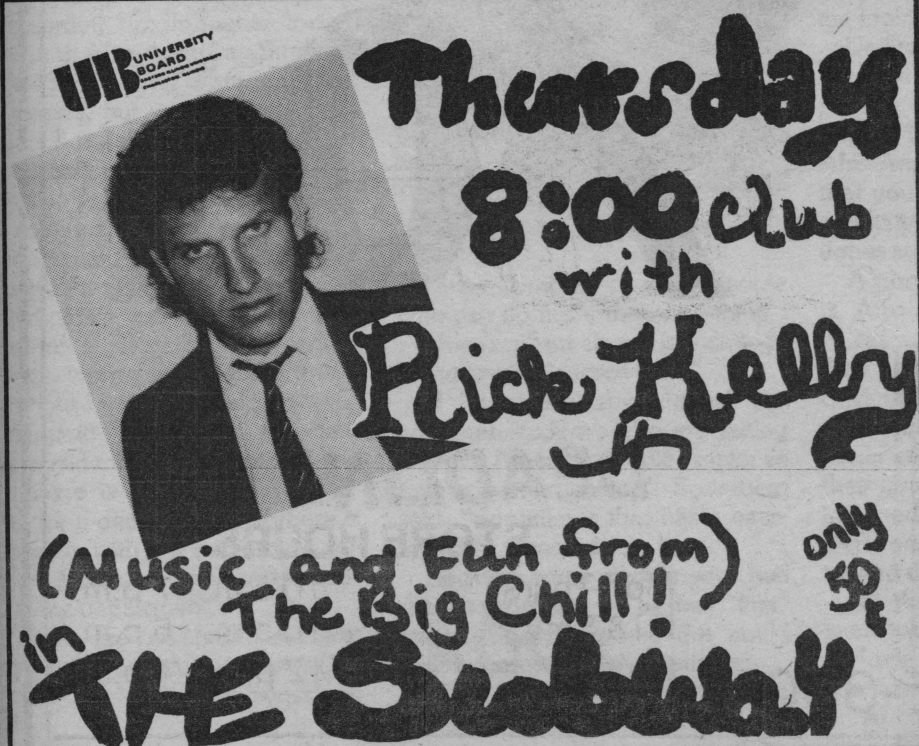 UB UNIVERSITY
BOARD
EASTERN ILLINOIS UNIVERSITY
CHARLESTON, ILLINOIS
Thursday
8:00 club
with
Rick Kelly
(Music and Fun from)
The Big Chill!
only
50¢
in
THE SubwAY